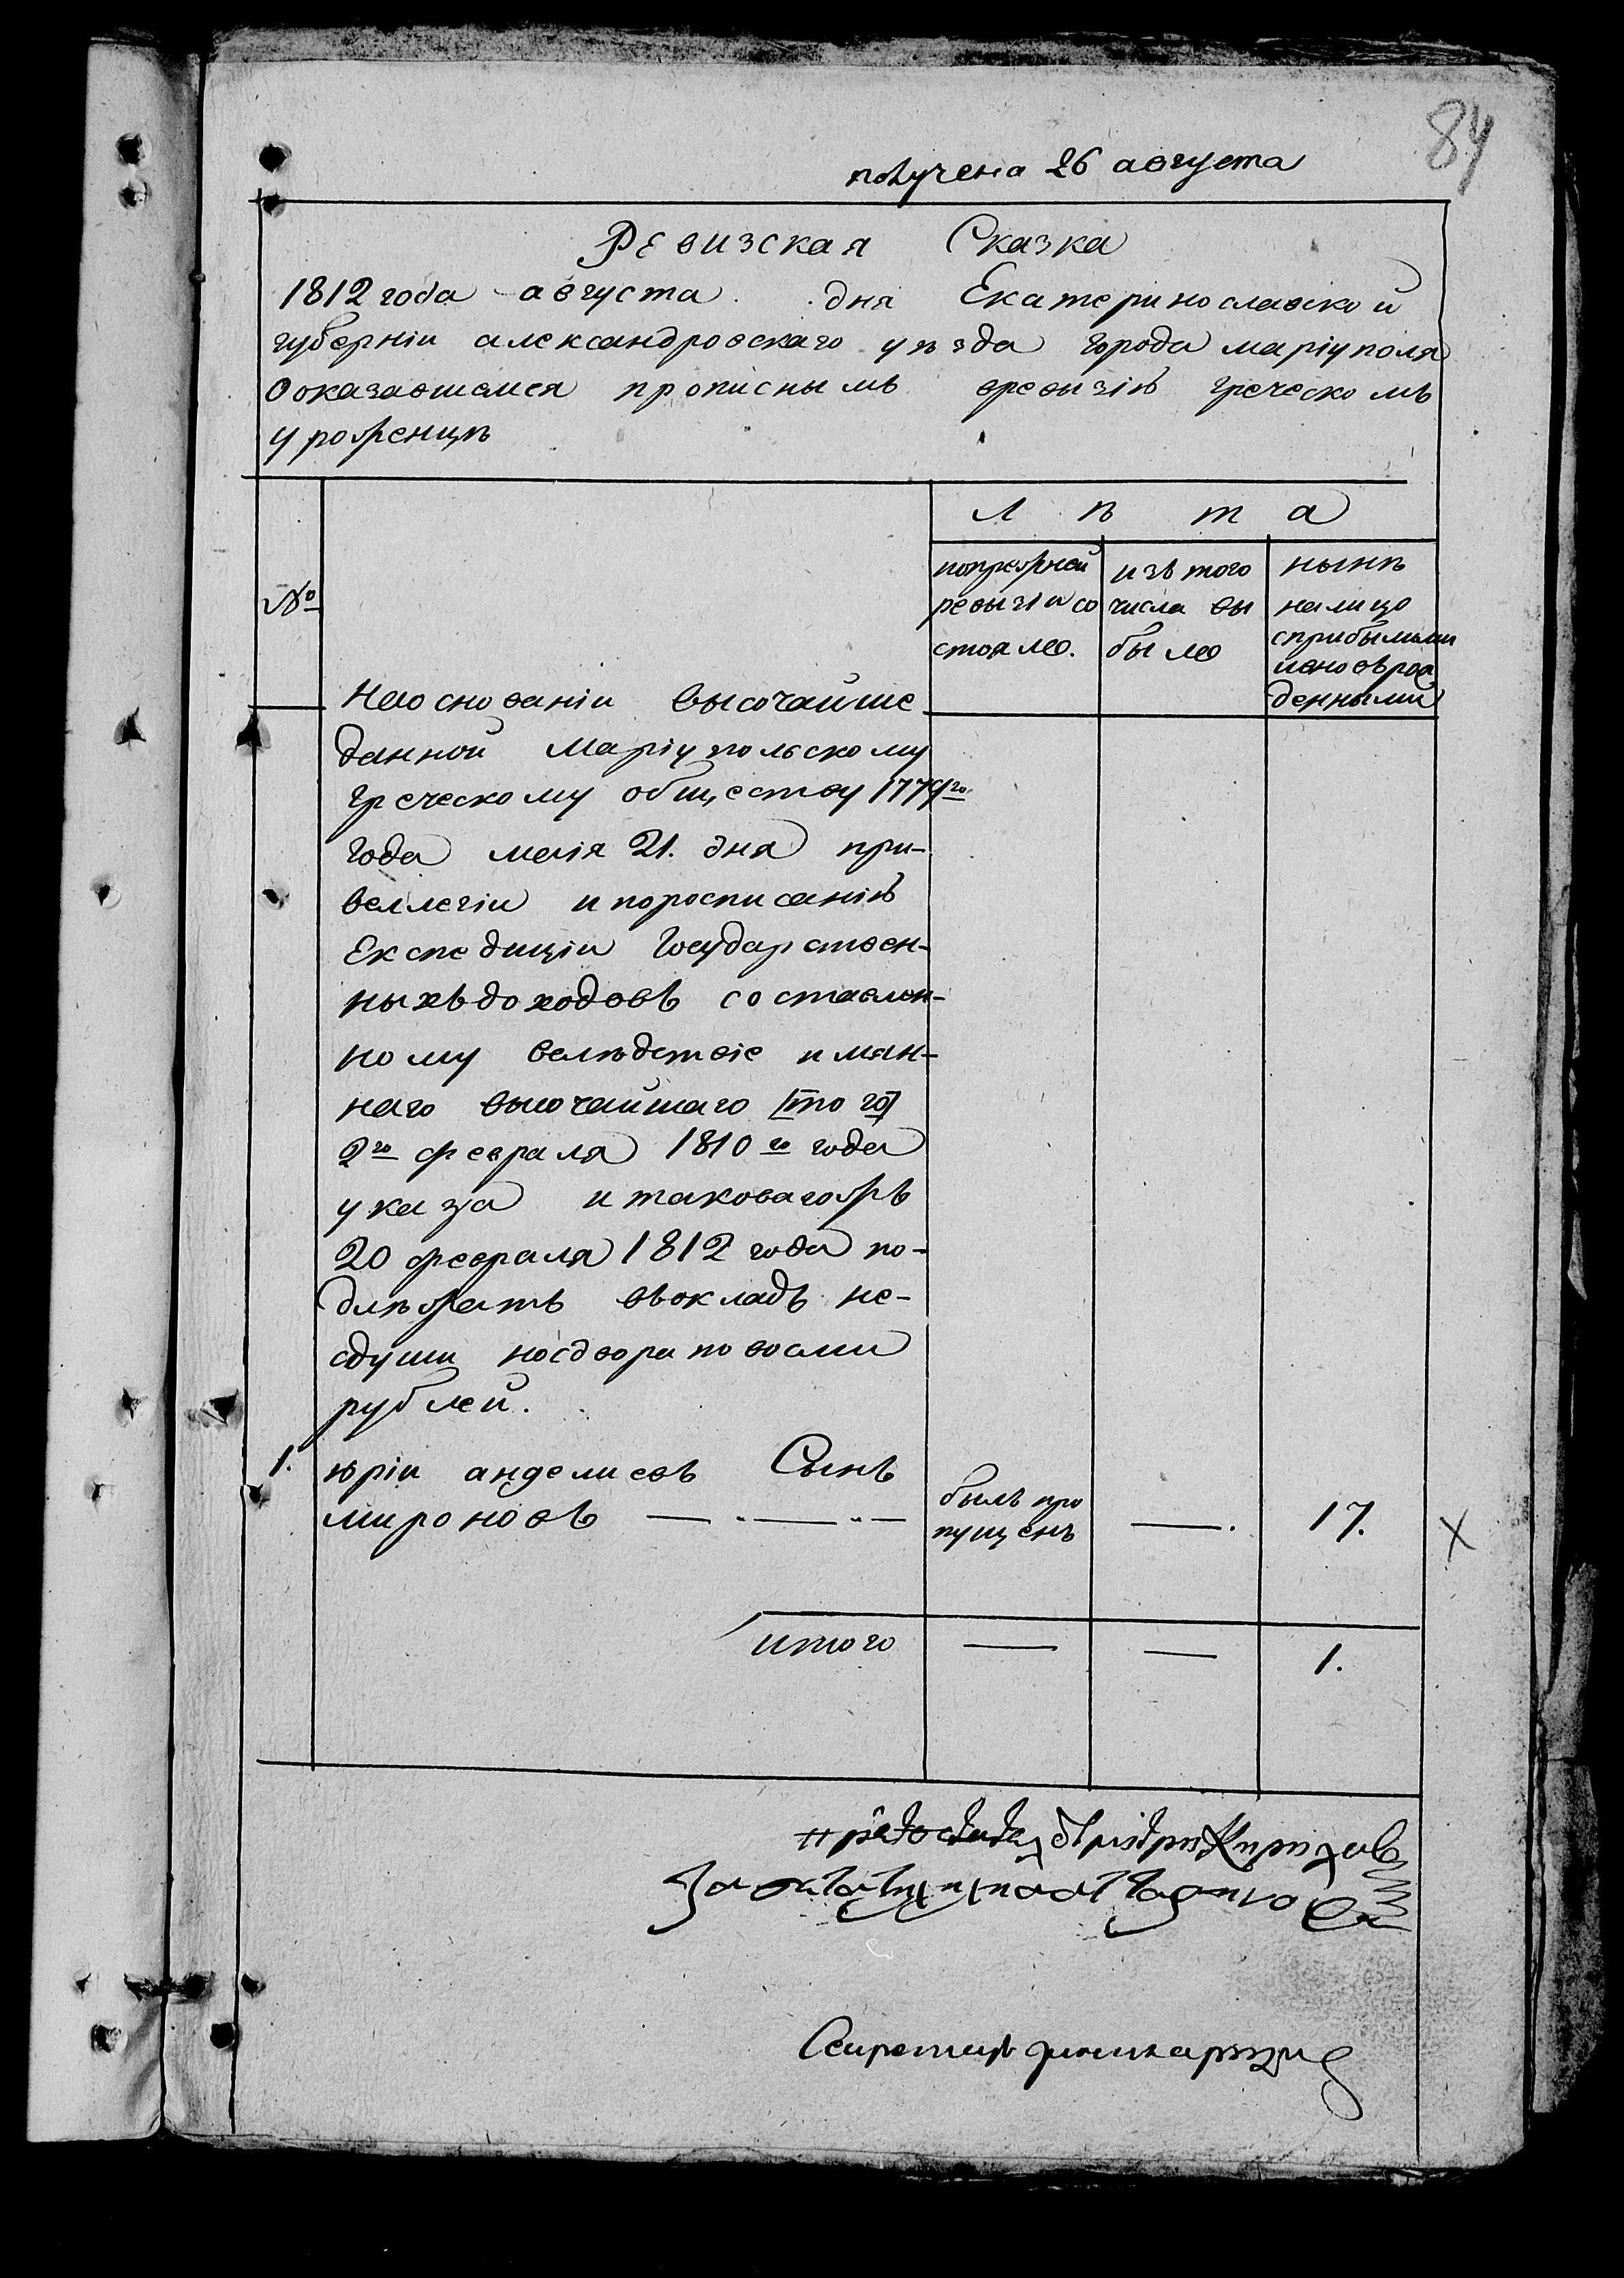 84
получена 26 августа
Ревизская Сказка
1812 года августа . дня Екатеринославской
губерніи александровскаго уѣзда города маріуполя
Ооказавшемся прописнымъ вревызіѣ греческомъ
уроженцѣ
№
Лѣта
попрежней
ревызіи со
стояло.
изъ того
числа вы
было
нынѣ
налицо
сприбылыми
иновьрож
денными
Наоснованіи высочайше
данной Маріупольскому
греческому обществу 1779го
года маія 21. дня при-
веллегіи ипоросписанію
Експедиціи Государствен-
ныхъ доходовъ составлен-
ному вслѣдствіе имян-
наго высочайшаго [того]
2го февраля 1810го года
указа итаковагожъ
20 февраля 1812 года по-
длѣжатъ въокладъ не-
сдуши носдвора повосми
рублей.
1. юріи анделисвъ Сынъ
мироновъ
былъ про
пущенъ
—.
17.
X
итого — — 1.
Секретарь